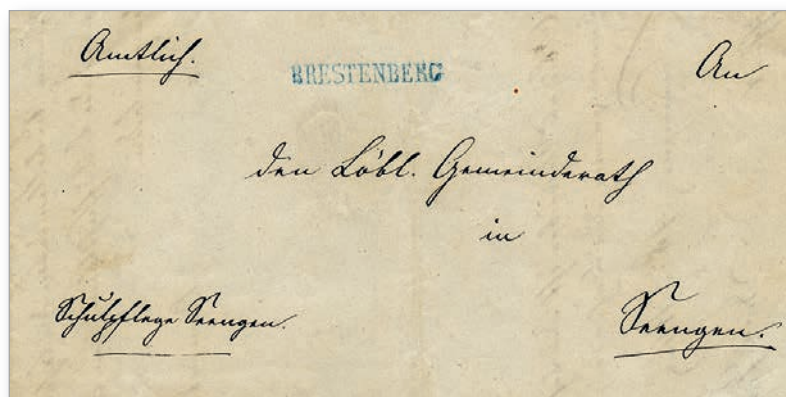 Amtlich.
BRESTENBERG
An
den Löbl. Gemeinderath
in
Schulpflege Seengen.
Seengen.